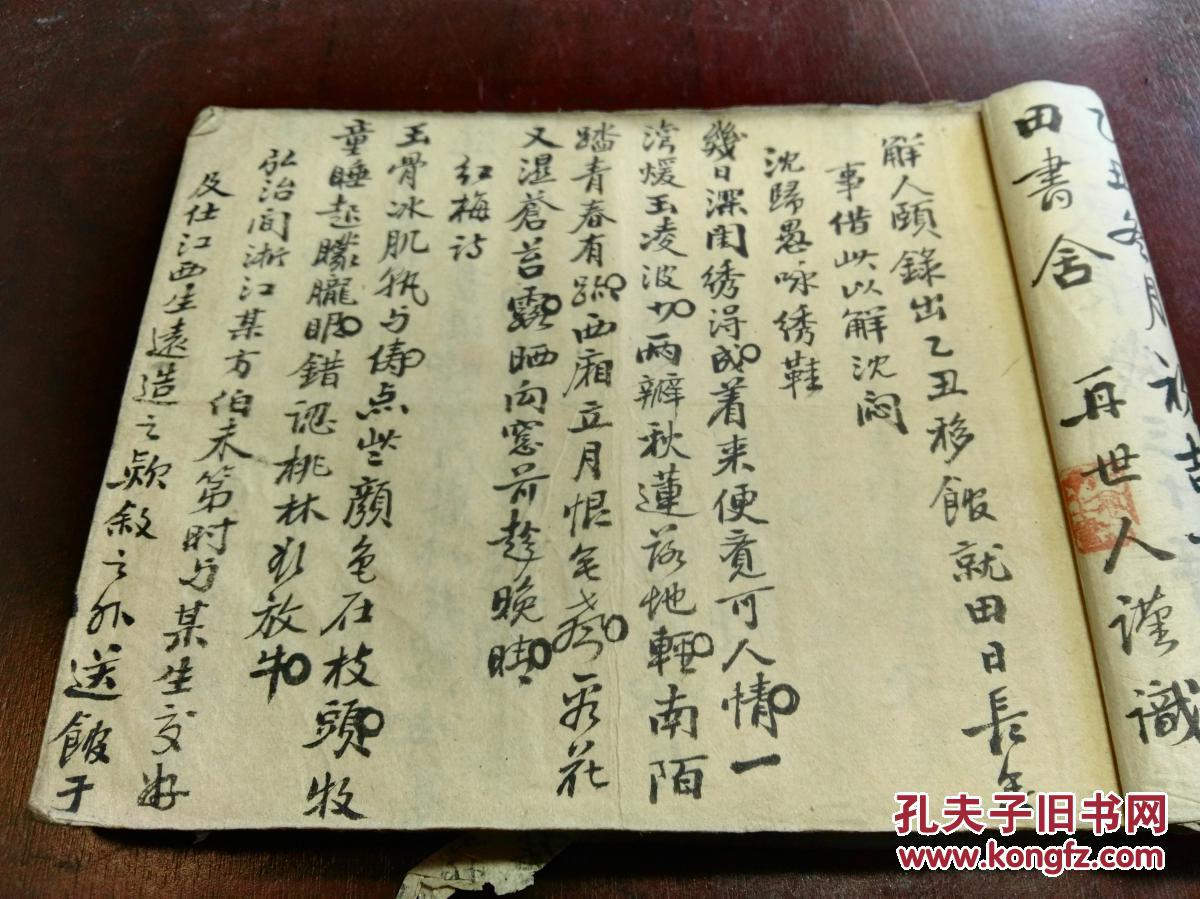 乙丑冬月
田書舍 再世人謹識
解人頤錄出乙丑移館就田日長無
事借此以解沈悶
沈歸愚咏绣鞋
幾日深闺绣得成着来便覓可人情一
湾煖玉凌波切两辦秋蓮落地輕南陌
踏青春有跡西廂立月恨無声看花
又濕蒼苔露晒向窓前趁晚晴
红梅诗
玉骨冰肌孰与俦点些颜色在枝頭牧
童睡起朦朧眼错認桃林欲放牛
弘治间浙江某方伯未第时与某生交好
及仕江西生遠造之欵敘之外送館于
孔夫子旧书网
www.kongfz.com